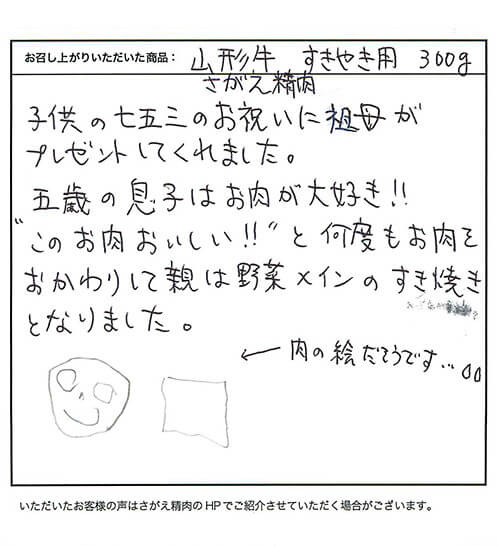 お召し上がりいただいた商品: 山形牛 すきやき用 300g
さがえ精肉
子供の七五三のお祝いに祖母が
プレゼントしてくれました。
五歳の息子はお肉が大好き!!
"このお肉おいしい!!"と何度もお肉を
おかわりして親は野菜メインのすき焼き
となりました。
←肉の絵だそうです…
いただいたお客様の声はさがえ精肉のHPでご紹介させていただく場合がございます。